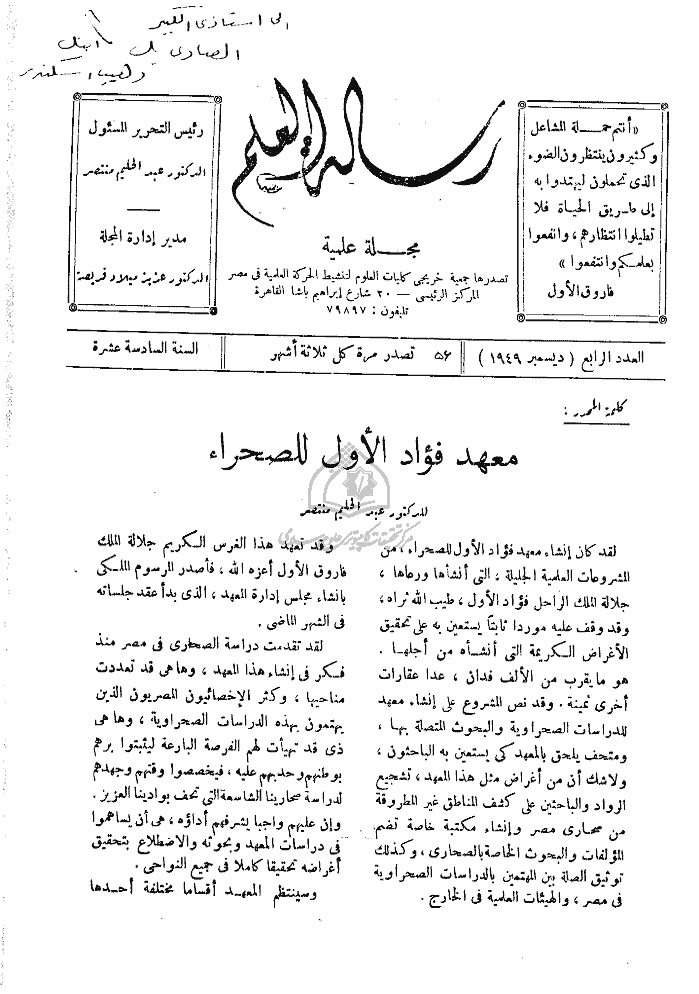 الى استاذى الكبير
الصاوى بك
رسالة العلم
«أنتم حمـــلة المشاعل
وكثيرون ينتظرون الضوء
الذى تحملون ليهتدوا به
إلى طريق الحياة فلا
تطيلوا انتظارهم، وانفعوا
بعلمـكم وانتفعوا»
فاروق الأول
مجـــلة علمية
تصدرها جمعية خريجى كليات العلوم لتنشيط الحركة العلمية فى مصر
المركز الرئيسى — ٢٠ شارع إبراهيم باشا القاهرة
تليفون : ٧٩٨٩٧
رئيس التحرير المسئول
الدكتور عبد الحليم منتصر
مدير إدارة المجلة
الدكتور عزيز ميلاد فريصة
العدد الرابع ( ديسمبر ١٩٤٩ )
٥٦ تصدر مرة كل ثلاثة أشهر
السنة السادسة عشرة
كلمة المحرر :
معهد فؤاد الأول للصحراء
للدكتور عبد الحليم منتصر
لقد كان إنشاء معهد فؤاد الأول للصحراء ، من
المشروعات العلمية الجليلة ، التى أنشأها ورعاها ،
جلالة الملك الراحل فؤاد الأول ، طيب الله ثراه ،
وقد وقف عليه موردا ثابتاً يستعين به على تحقيق
الأغراض الـكريمة التى أنشـأه من أجلهـا .
هو ما يقرب من الألف فدان ، عدا عقارات
أخرى ثمينة . وقد نص المشروع على إنشاء معهد
للدراسات الصحراوية والبحوث المتصلة بهـا ،
ومتحف يلحق بالمعهد كى يستعين به الباحثون ،
ولاشك أن من أغراض مثل هذا المعهد ، تشجيع
الرواد والباحثين على كشف المناطق غير المطروقة
من صحارى مصر وإنشاء مكتبة خاصة تضم
المؤلفات والبحوث الخاصة بالصحارى ، وكـذلك
توثيق الصلة بين المهتمين بالدراسات الصحراوية
فى مصر ، والهيئات العلمية فى الخارج .
وقد تعهد هذا الغرس الـكريم جلالة الملك
فاروق الأول أعزه الله ، فأصدر المرسوم الملـكى
بانشاء مجلس إدارة المعهد ، الذى بدأ عقد جلساته
فى الشهر الماضى .
لقد تقدمت دراسة الصحارى فى مصر منذ
فـكر فى إنشاء هذا المعهد ، وها هى قد تعددت
مناحيها ، وكثر الإخصائيون المصريون الذين
يهتمون بهذه الدراسات الصحراوية ، وها هى
ذى قد تهيأت لهم الفرصة البارعة ليثبتوا برهم
بوطنهم وحدبهم عليه ، فيخصصوا وقتهم وجهدهم
لدراسة صحارينا الشاسعة التى تحف بوادينا العزيز .
وإن عليهم واجبا يشرفهم أداؤه ، هى أن يساهموا
فى دراسات المعهد وبحوثه والاضطلاع بتحقيق
أغراضه تحقيقا كاملا فى جميع النواحى .
وسينتظم المعهـد أقساما مختلفة أحـدها